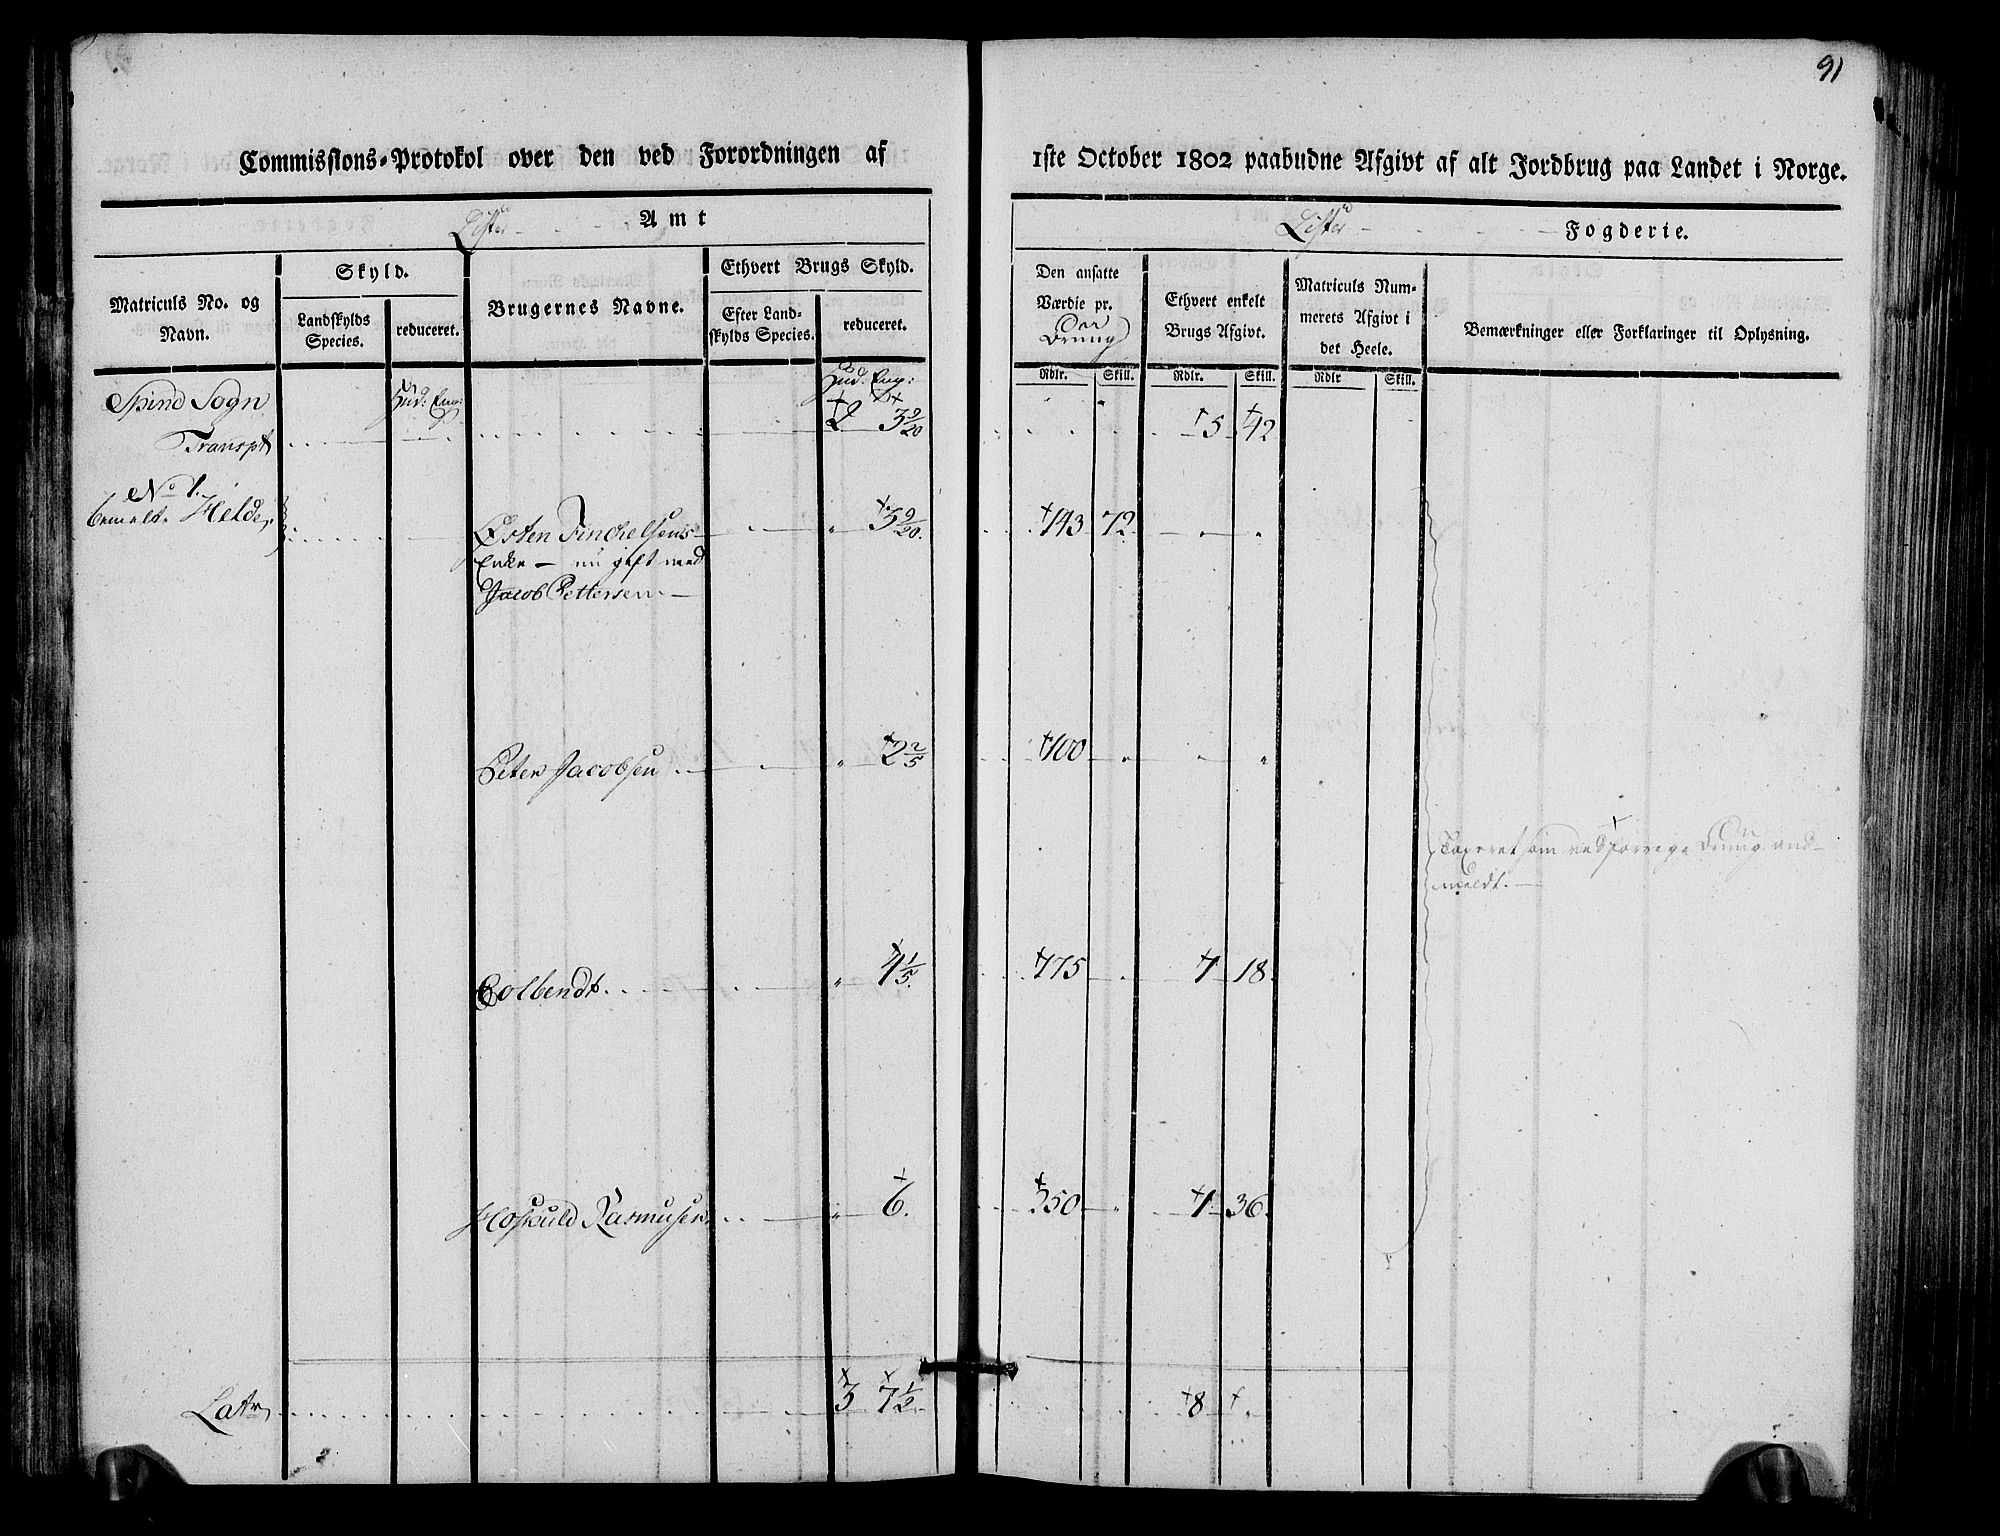 91
Commissions-Protokol over den ved Forordningen af
1ste October 1802 paabudne Afgivt af alt Jordbrug paa Landet i Norge.
Lister Amt
Lister Fogderie.
Matriculs No. og Navn.
Skyld.
Landskylds Species.
reduceret.
Brugernes Navne.
Ethvert Brugs Skyld.
Efter Landskylds Species.
reduceret.
Den ansatte Værdie pr.
Ethvert enkelt Brugs Afgivt.
Matriculs Nummerets Afgivt i det Heele.
Bemærkninger eller Forklaringer til Oplysning.
Rdlr. Skill. Rdlr. Skill. Rdlr Skill.
Spind Sogn Hud: Eng: Hud: Eng:
Transpt 2 3 9/20 5 42
No 1.
bemelte Helde, Østen Finchelsens 3 9/20. 143 72
Enke — nu gift med
Jacob Pettersen —
Peter Jacobsen 2 2/5 100
Taxeret som ved forrige
meldt. —
Colbendt 4 1/5. 175 1 18.
Hoskuld Rasmusen 6. 250 1 36.
Latr 3 7 1/2. 8